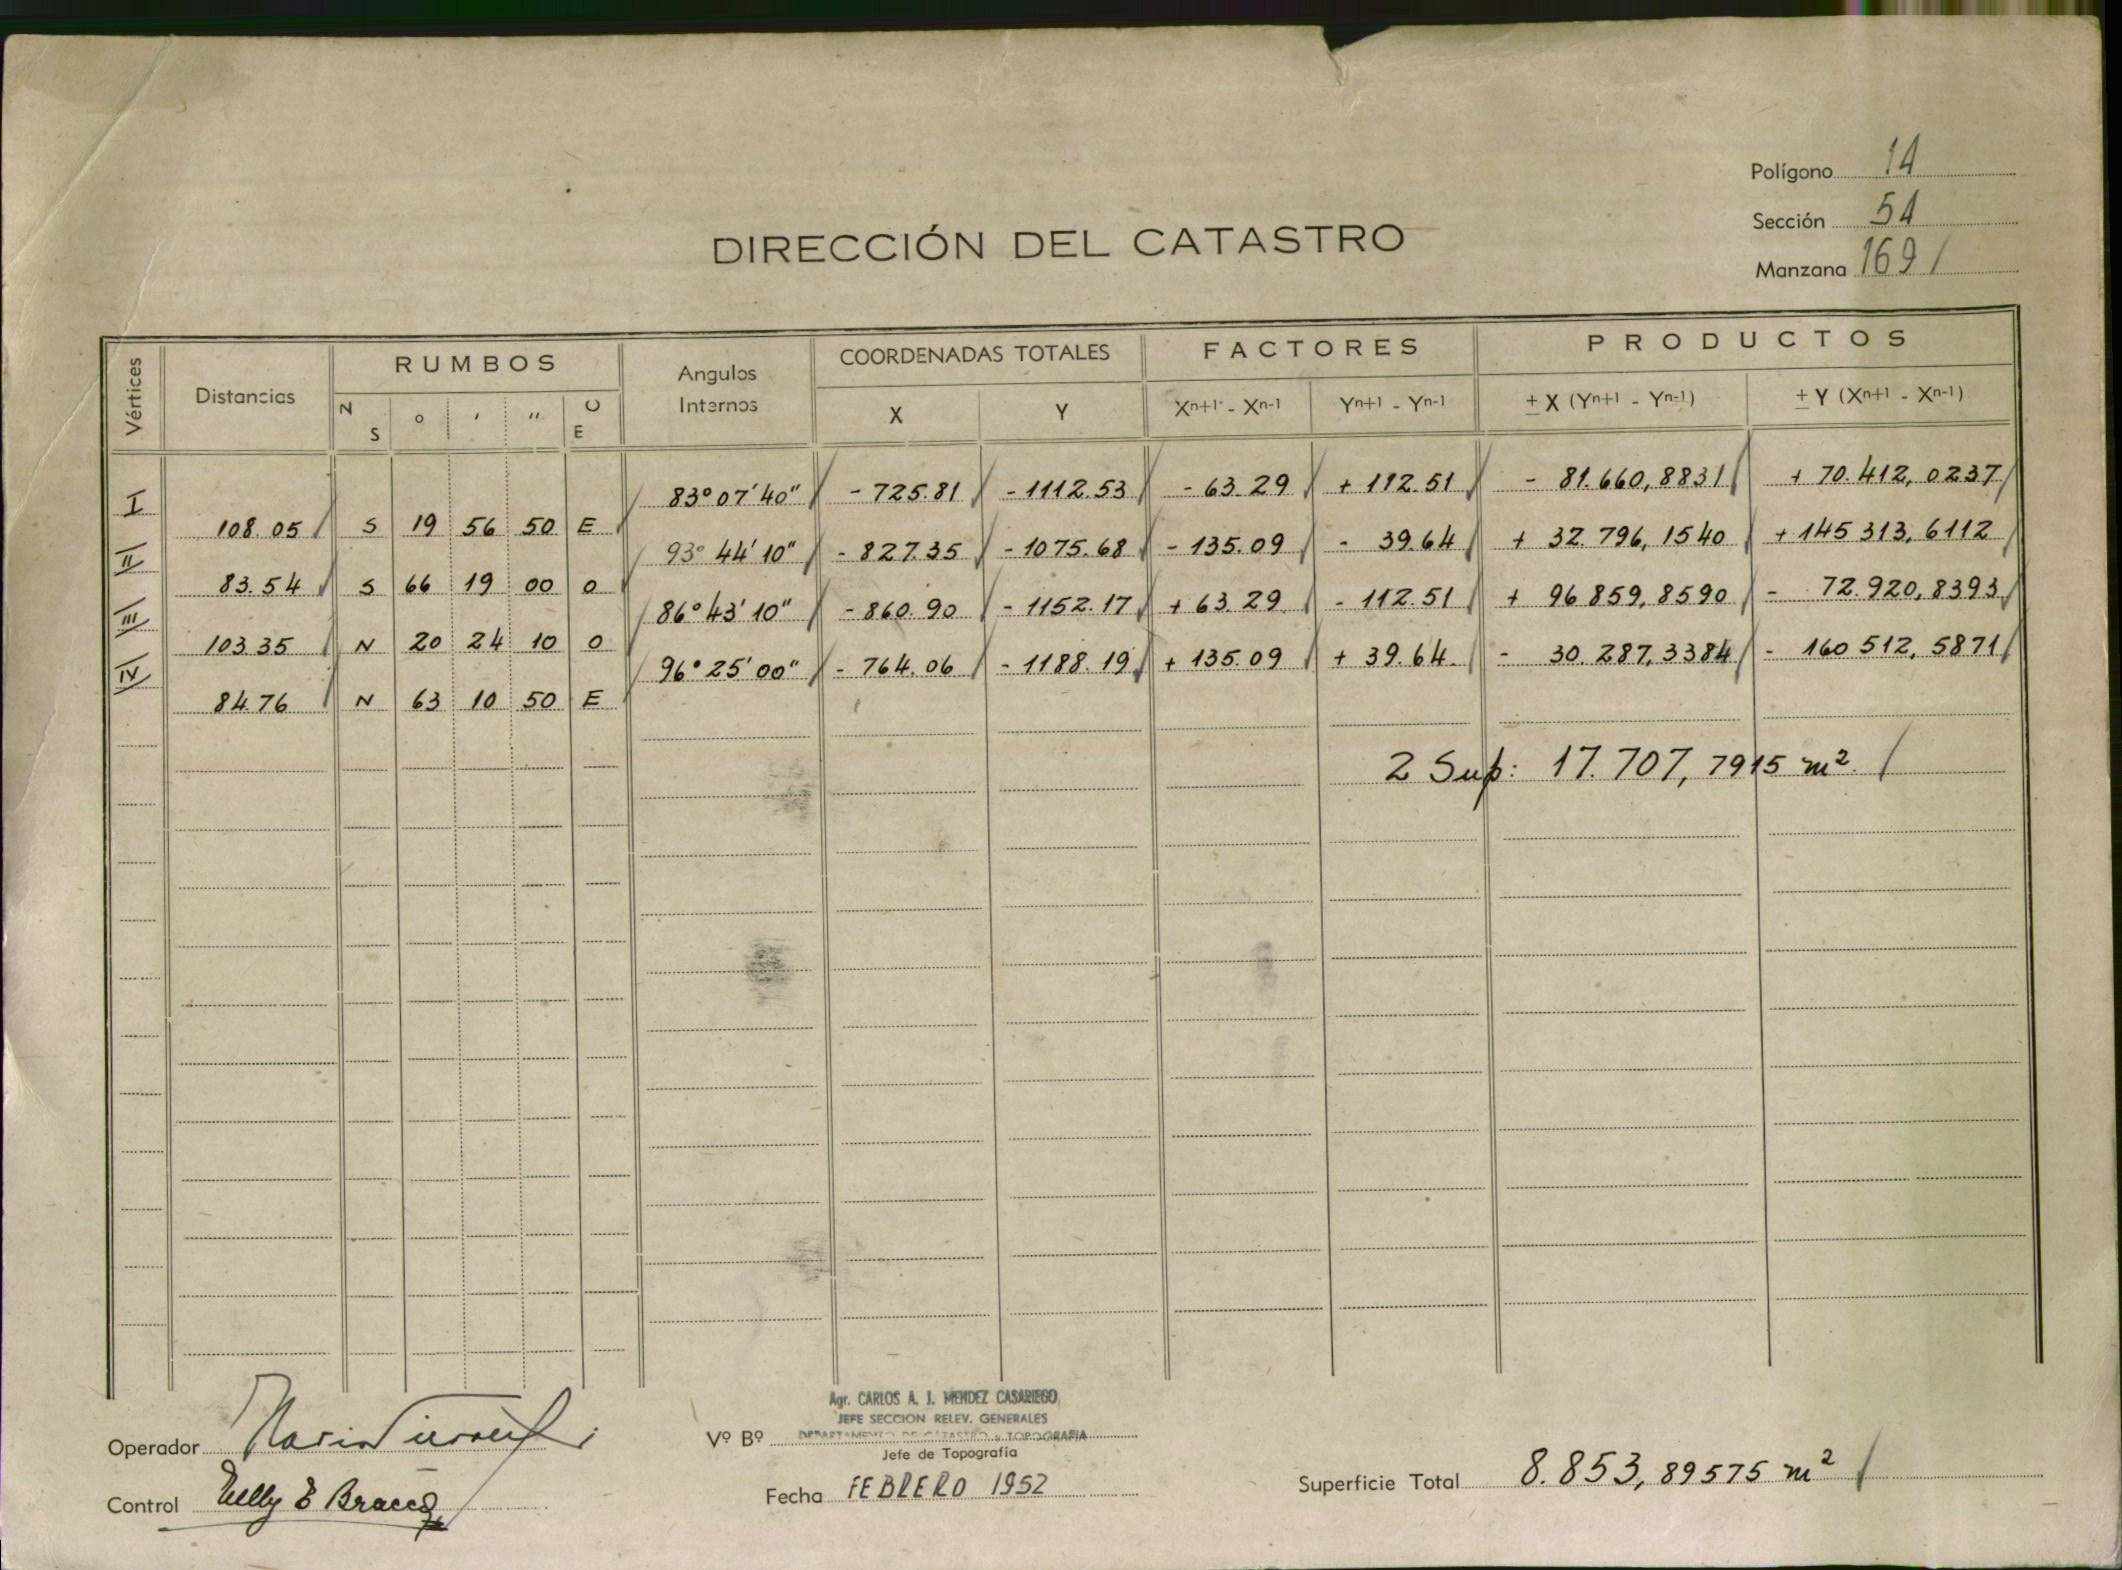 Polígono 14
Sección 54
Manzana 169
DIRECCIÓN DEL CATASTRO
Vértices Distancias RUMBOS Angulos Internos COORDENADAS TOTALES FACTORES PRODUCTOS
N S ° ' '' O E X Y Xn+1 - Xn-1 Yn+1 - Yn-1 ± X (Yn+1 - Yn-1) ± Y (Xn+1 - Xn-1)
I 83° 07' 40" - 725.81 - 1112.53 - 63.29 + 112.51 - 81.660,8831 + 70.412,0237
108.05 S 19 56 50 E
II 93° 44' 10" - 827.35 - 1075.68 - 135.09 - 39.64 + 32.796,1540 + 145 313,6112
83.54 S 66 19 00 O
III 86° 43' 10" - 860.90 - 1152.17 + 63.29 - 112.51 + 96 859,8590 - 72.920,8393
103.35 N 20 24 10 O
IV 96° 25' 00" - 764.06 - 1188.19 + 135.09 + 39.64 - 30.287,3384 - 160 512,5871
84.76 N 63 10 50 E
2 Sup: 17.707,7915 m²
Agr. CARLOS A. J. MENDEZ CASARIEGO
JEFE SECCION RELEV. GENERALES
DEPARTAMENTO DE CATASTRO y TOPOGRAFIA
Operador
Vº Bº
Jefe de Topografía
Control Nelly E Bracco
Fecha FEBRERO 1952
Superficie Total 8.853,89575 m²